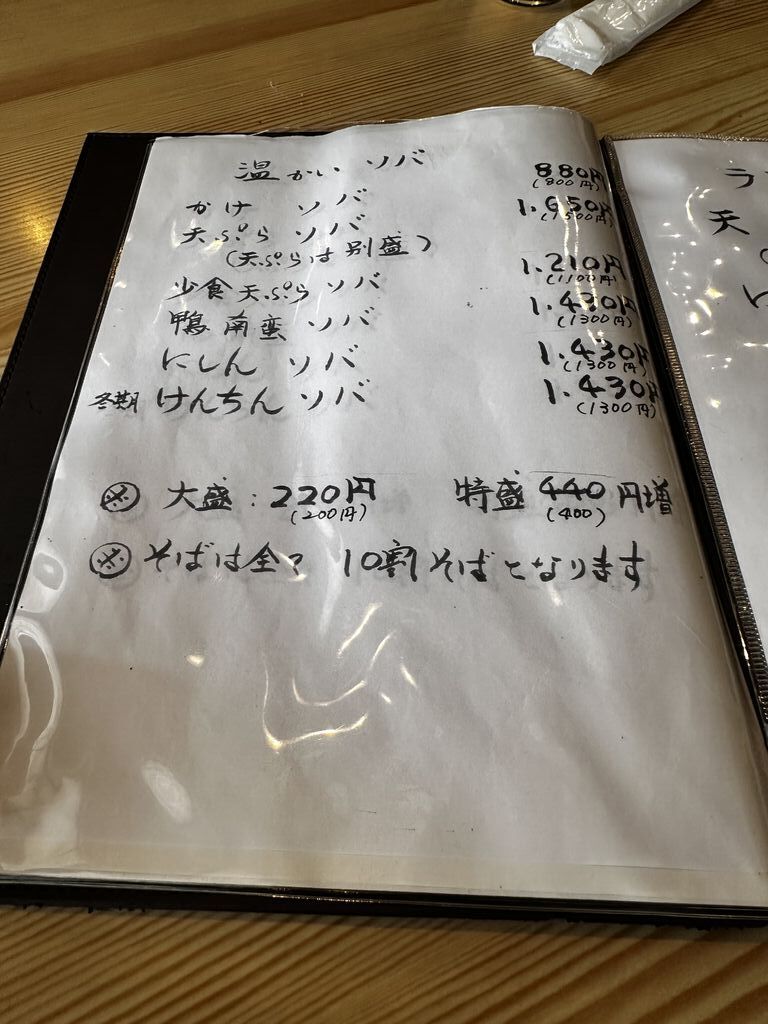 温かい ソバ
かけ ソバ 880円
(800円)
天ぷら ソバ 1.650円
(1500円)
(天ぷらは別盛)
少食天ぷら ソバ 1.210円
(1100円)
鴨南蛮 ソバ 1.430円
(1300円)
にしん ソバ 1.430円
(1300円)
冬期 けんちん ソバ 1.430円
(1300円)
※ 大盛:220円 特盛 440円増
(200円) (400)
※ そばは全て 10割そばとなります
天